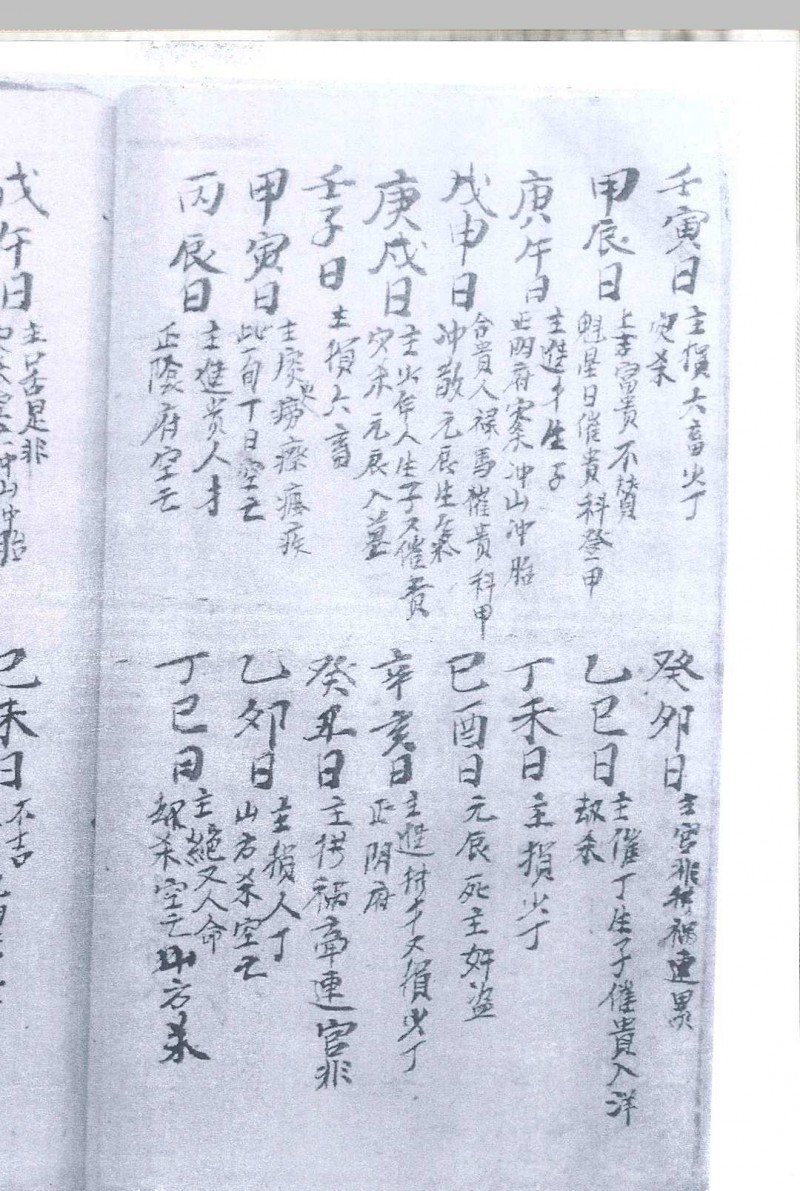 壬寅日
主損六畜少丁
灾杀
甲辰日
上吉富貴不替
魁星日催貴科登甲
庚午日
主進牛生子
正阴府灾杀冲山冲胎
戊申日
合貴人禄馬催貴科甲
冲散元辰生氣
庚戌日
主少年人生子又催貴
灾杀元辰入墓
壬子日
主損六畜
甲寅日
主痰癆瘵瘟疾
此一旬丁日空亡
丙辰日
主進貴人才
正陰府空亡
癸卯日
主官非横禍連累
乙巳日
主催丁生子催貴入泮
劫杀
丁未日
主損少丁
巳酉日
元辰死主奸盗
辛亥日
主進財才又損少丁
正阴府
癸丑日
主横禍牽連官非
乙卯日
主損人丁
山方杀空亡
丁巳日
主絕又人命
劫杀空亡山方杀
戊午日
主口舌是非
冲山冲胎
己未日
不吉